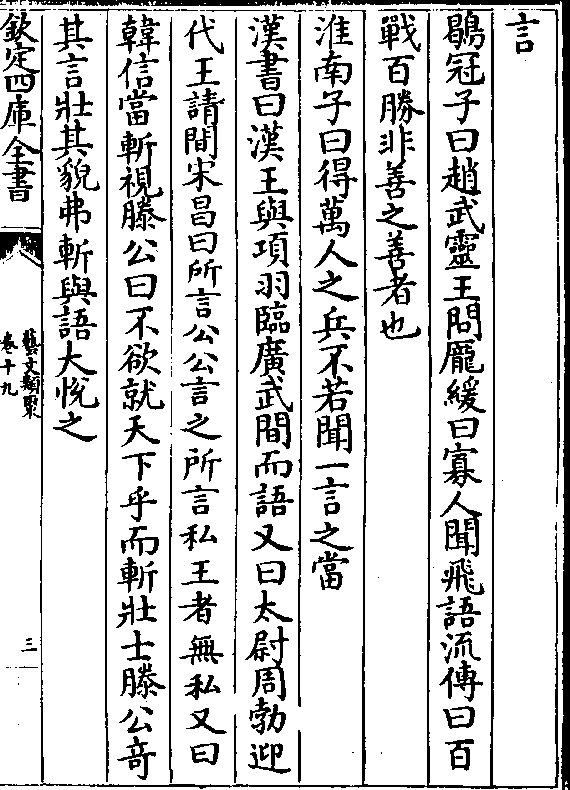 言
鶡冠子曰趙武靈王問龎緩曰寡人聞飛語流傳曰百
戰百勝非善之善者也
淮南子曰得萬人之兵不若聞一言之當
漢書曰漢王與項羽臨廣武間而語又曰太尉周勃迎
代王請間宋昌曰所言公公言之所言私王者無私又曰
韓信當斬視滕公曰不欲就天下乎而斬壯士滕公竒
其言壯其貌弗斬與語大悅之
欽定四庫全書
藝文類聚
卷十九
三